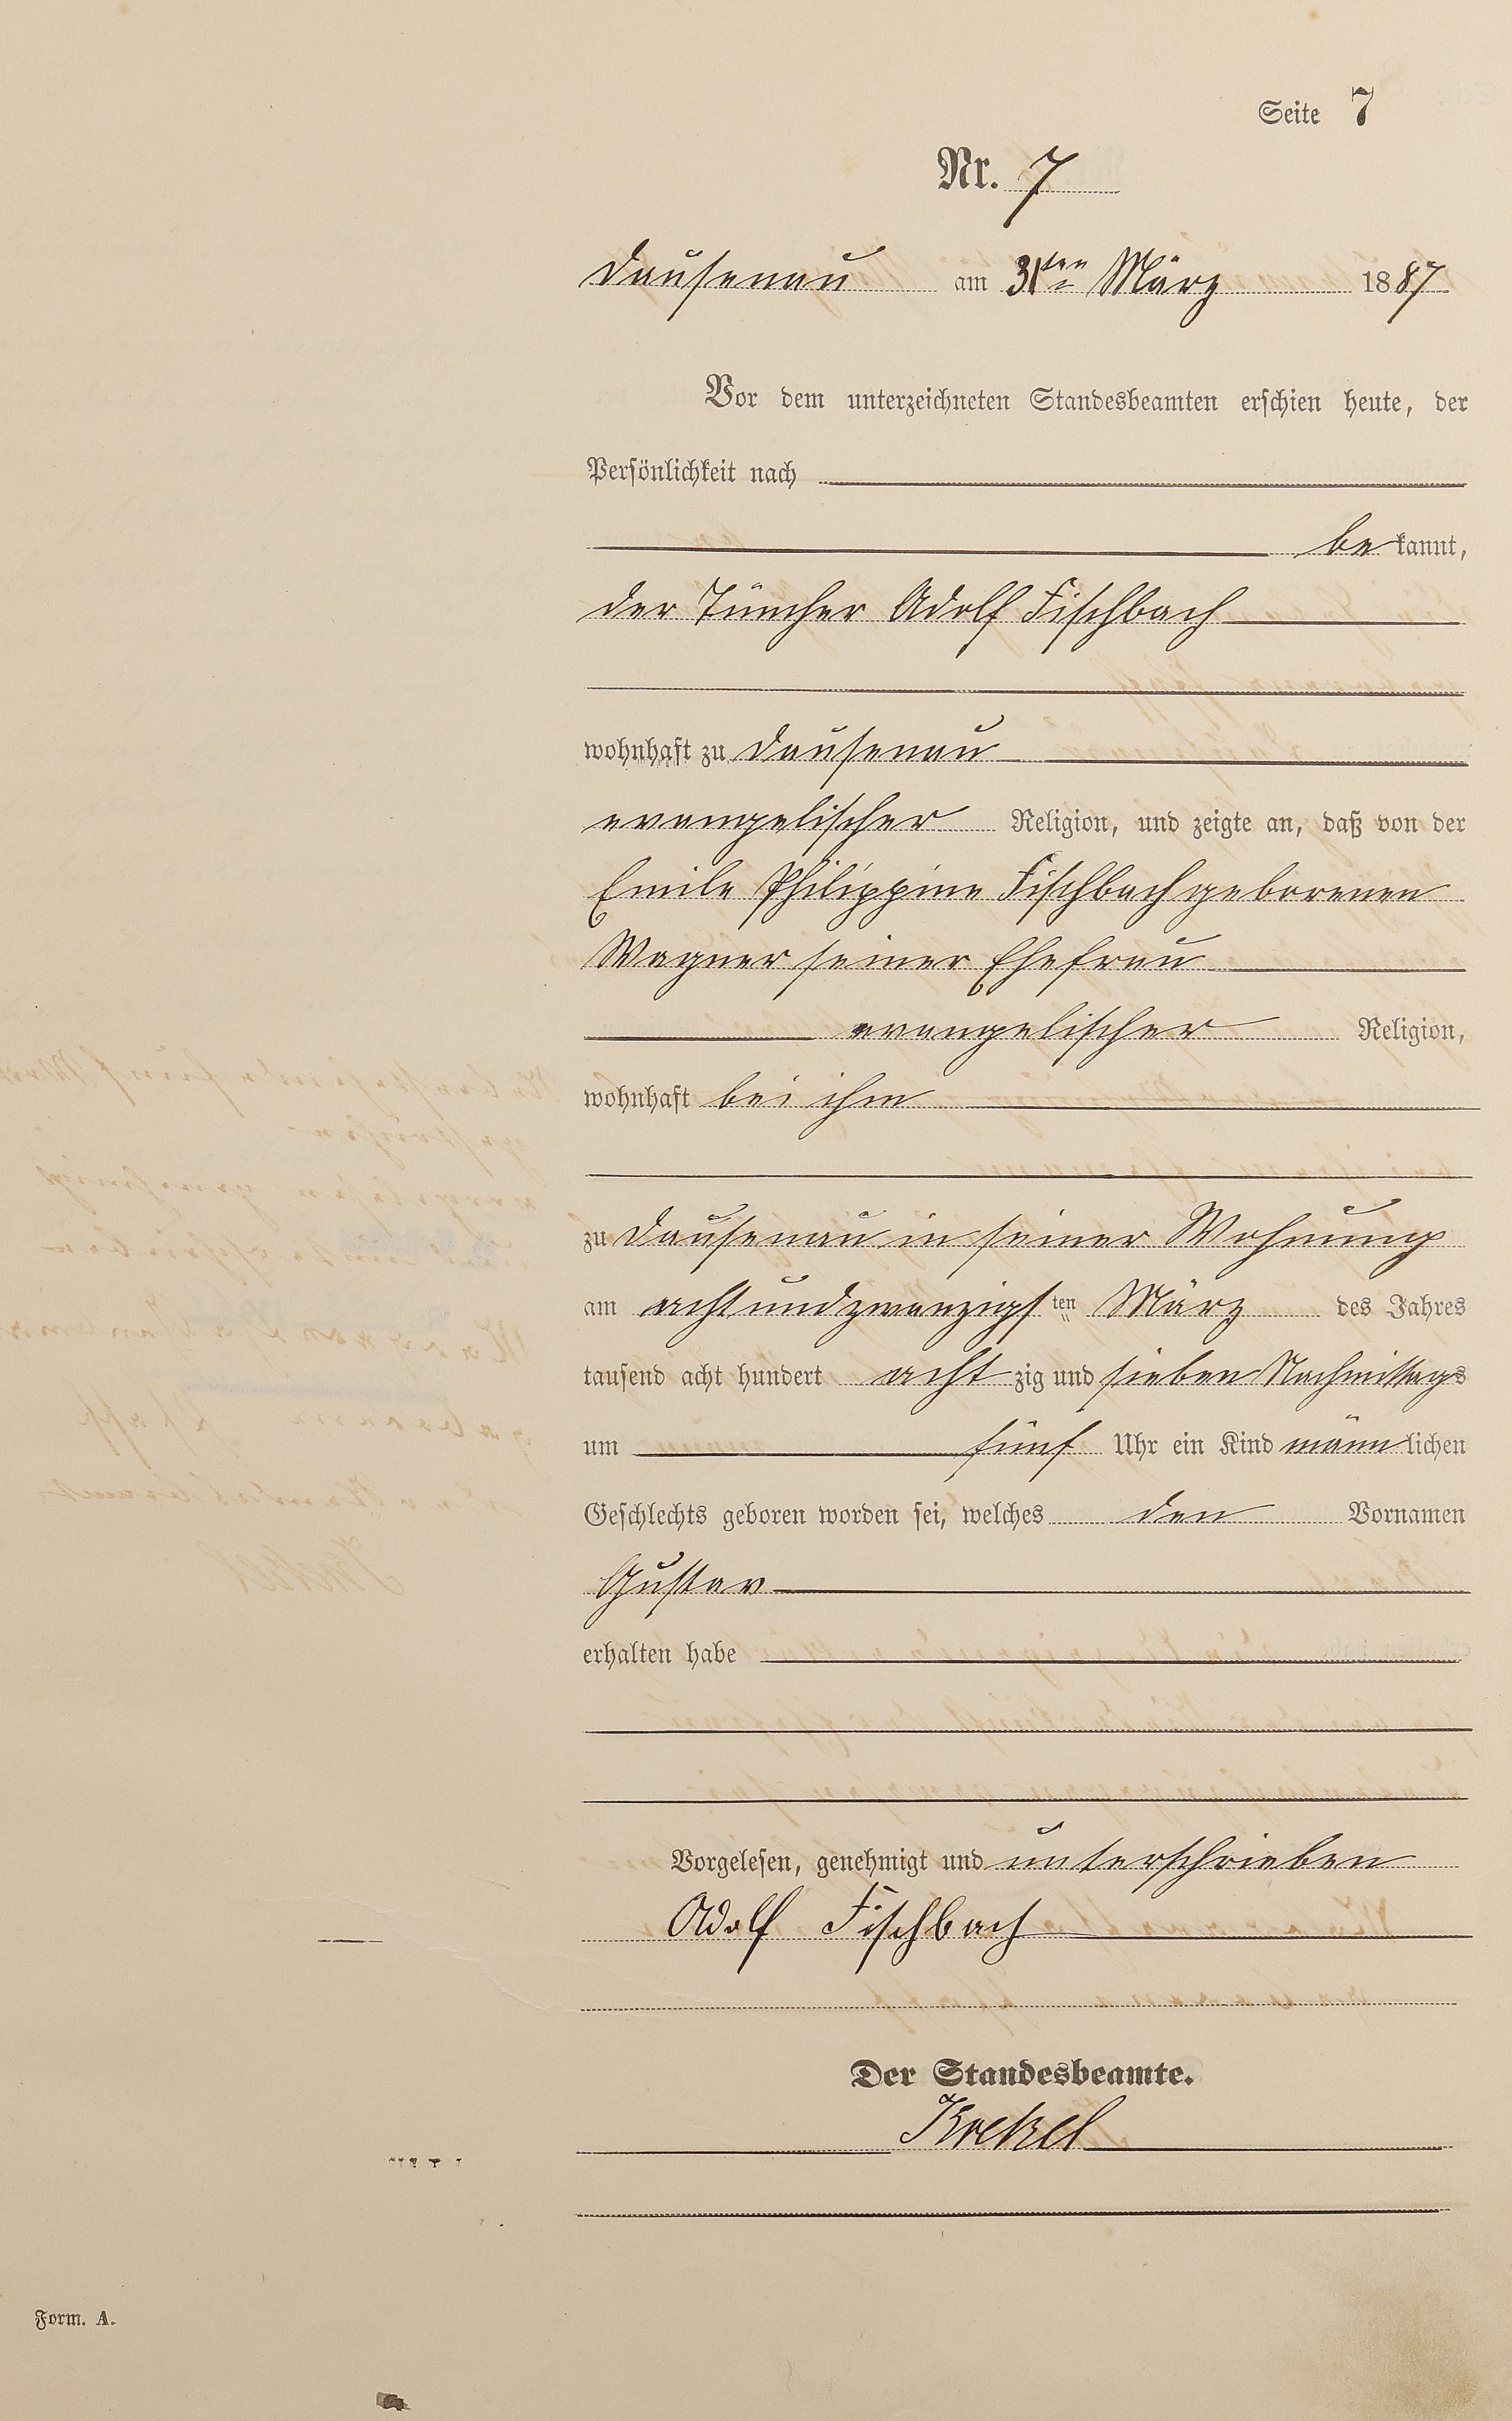 Seite 7
Nr. 7
Dausenau am 31ten März 1887
Vor dem unterzeichneten Standesbeamten erschien heute, der
Persönlichkeit nach
bekannt,
der Tüncher Adolf Fischbach
wohnhaft zu Dausenau
evangelischer Religion, und zeigte an, daß von der
Emile Philippine Fischbach geborenen
Wagner seiner Ehefrau
evangelischer Religion,
wohnhaft bei ihm
zu Dausenau in seiner Wohnung
am achtundzwanzigsten März des Jahres
tausend acht hundert achtzig und sieben Nachmittags
um fünf Uhr ein Kind männlichen
Geschlechts geboren worden sei, welches den Vornamen
Gustav
erhalten habe
Vorgelesen, genehmigt und unterschrieben
Adolf Fischbach
Der Standesbeamte.
Krekel
Form. A.